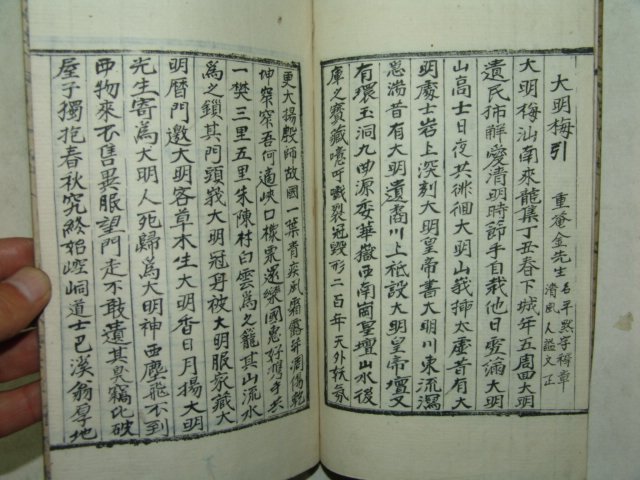 大明梅引 重菴金先生 名平默字穉章
淸風人諡文正
大明梅汕南來龍集丁丑春下城年五周四大明
遺民 解愛清明時節手自栽他日 滿大明
山高士日夜共徘徊大明山我揷太虛昔有大
明處士岩上深刻大明皇帝書大明川東流瀉
悲湍昔有大明遺裔川上祗設大明皇帝壇又
有環玉洞九曲源委華嶽西南崗皇壇山水後
庫之寶藏噫吁嚱裂冠毁形二百年天外妖氛
更大揚殷師故國一華青疾風霜露年凋傷乾
坤窄窄吾何適峽口 栗還樂國惠好 手去
一樊三里五里朱陳村白雲爲之籠其山流水
爲之鎖其門頭戴大明冠 被大明服家藏大
明曆門邀大明客草木生大明香日月揚大明
先生寄爲大明人死歸爲大明神西塵飛不到
西物來不售異服望門走不敢遺其臭窩比破
屋子獨抱春秋究終始崆峒道士巴溪翁厚地